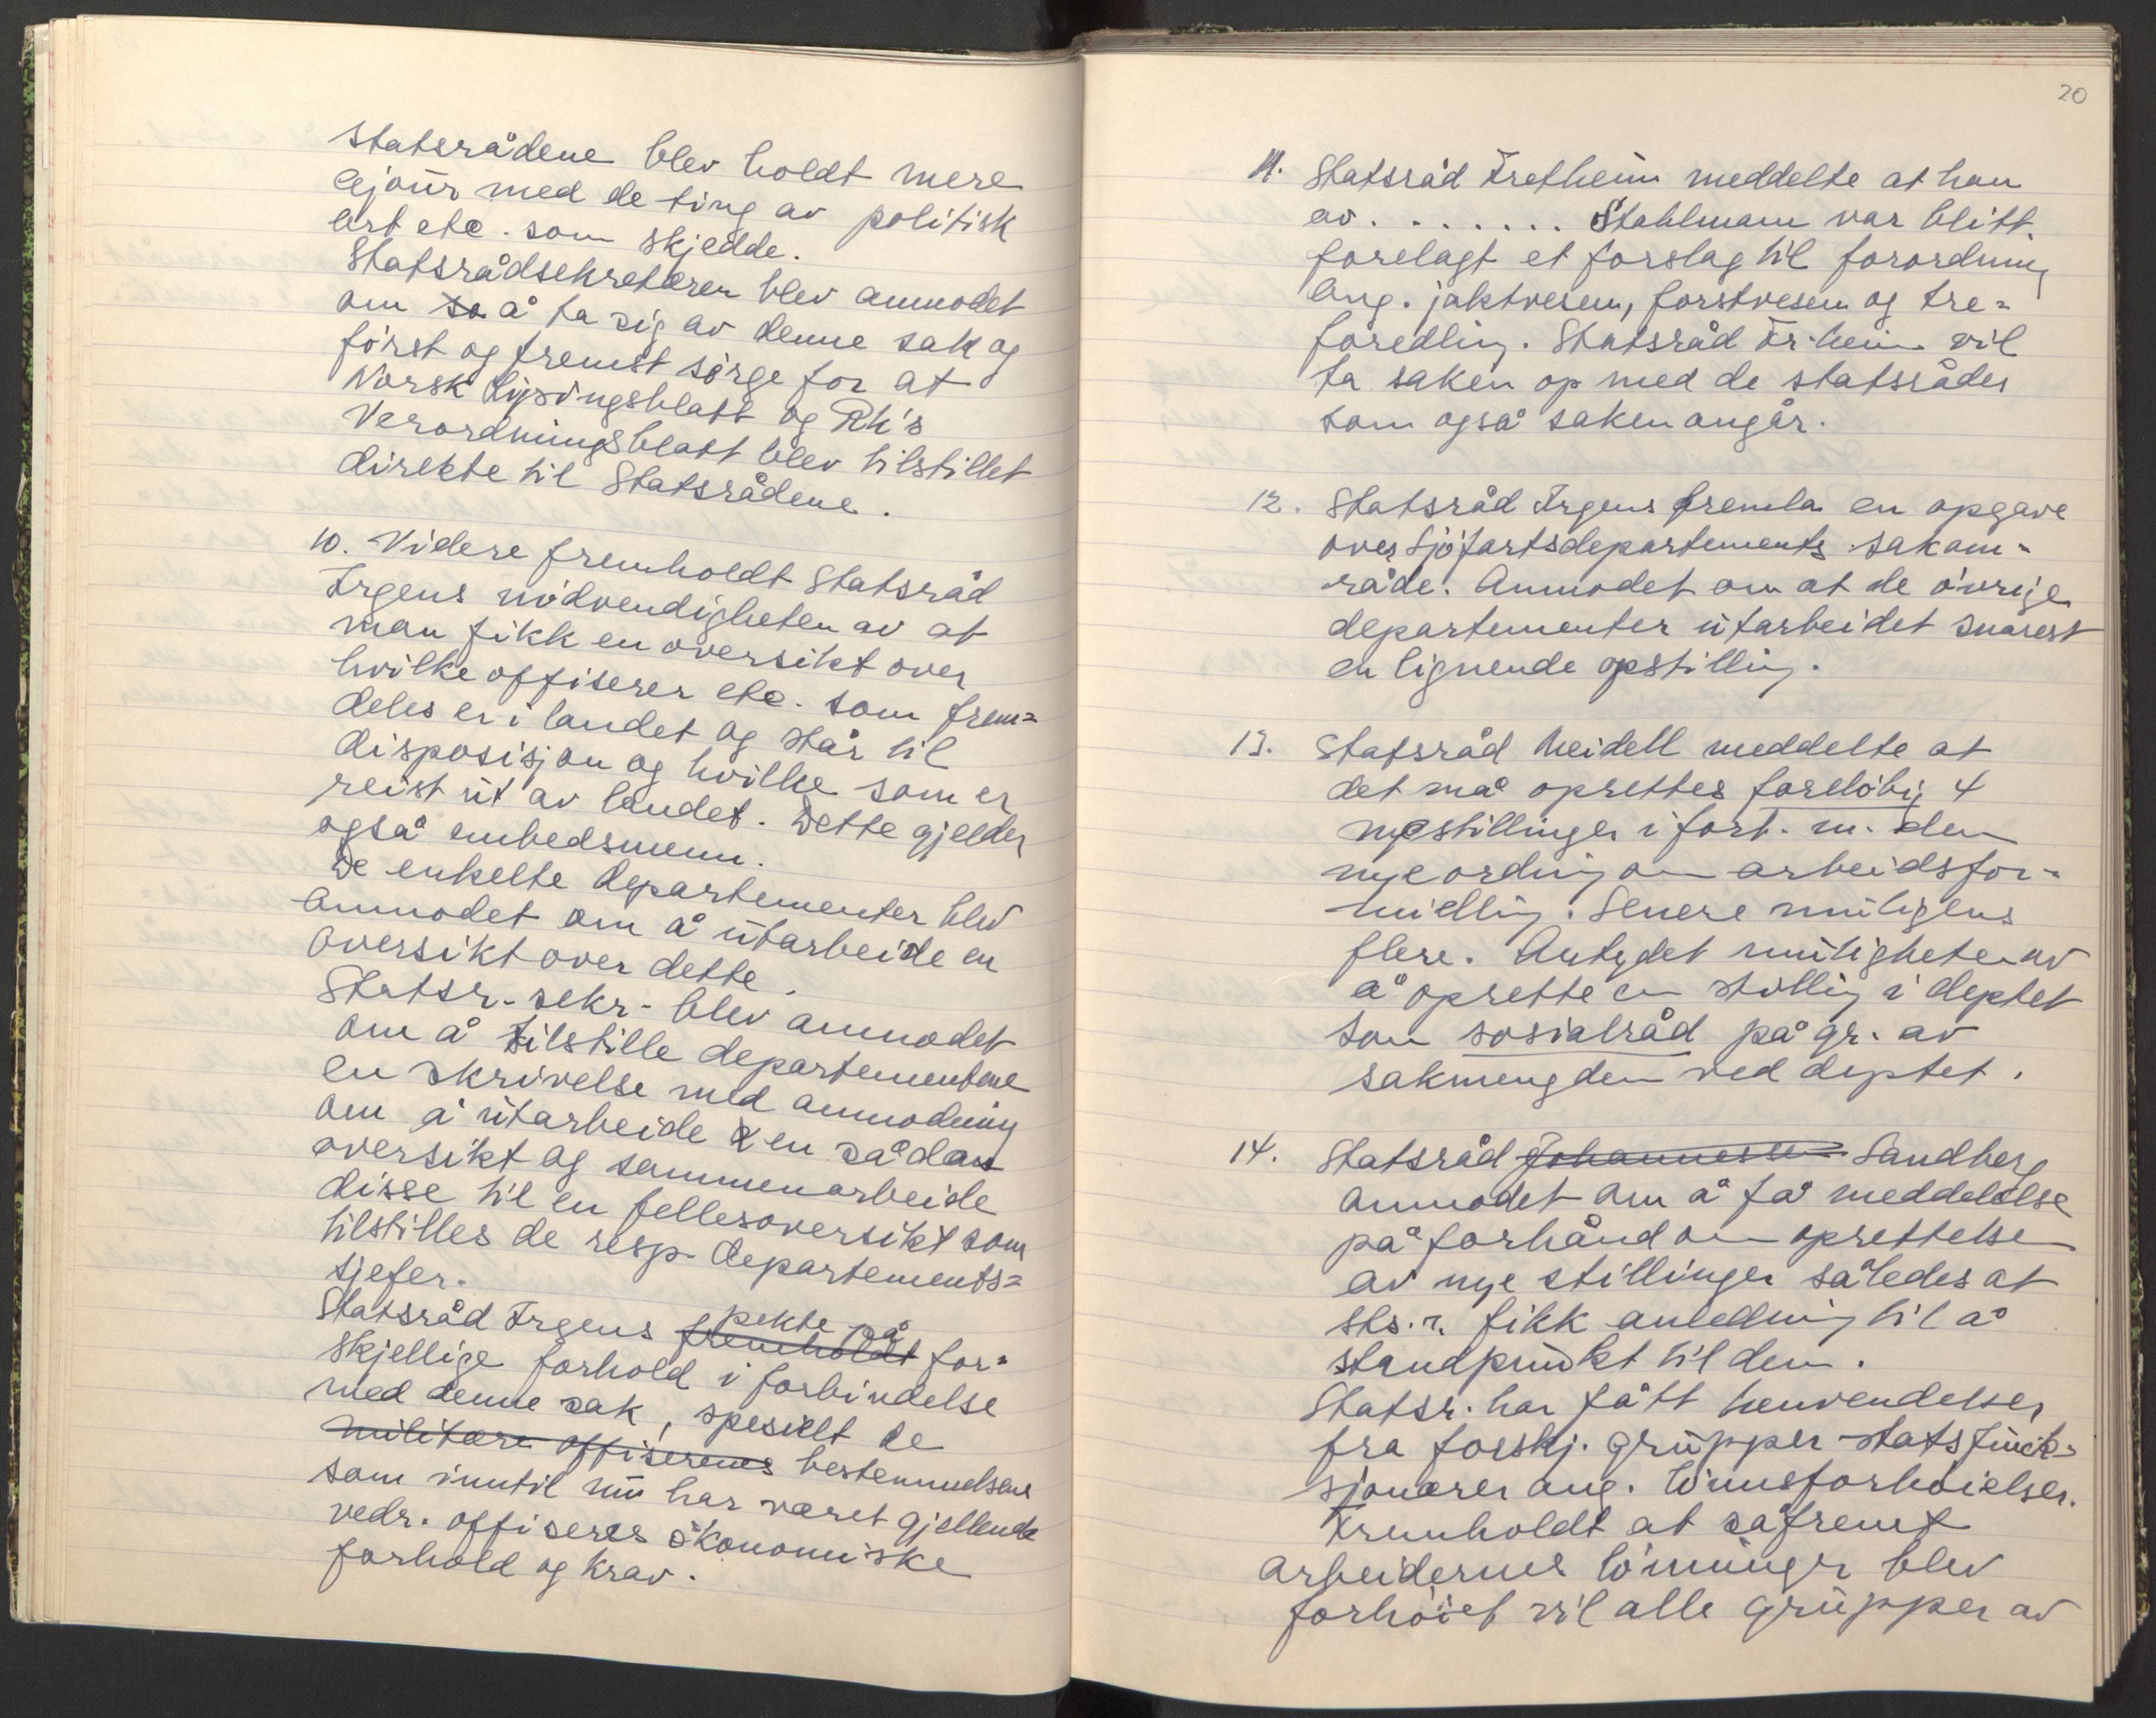 statsrådene blev holdt mere
ajour med de ting av politisk
art etc. som skjedde.
Statsrådsekretæren blev anmodet
om så å ta sig av denne sak og
först og fremst sörge for at
Norsk Lysingsblatt og Rk's
Verordnungsblatt blev tilstillet
direkte til Statsrådene.
10. Videre fremholdt Statsråd
Irgens nödvendigheten av at
man fikk en oversikt over
hvilke offiserer etc. som frem=
deles er i landet og står til
disposisjon og hvilke som er
reist ut av landet. Dette gjelder
også embedsmenn.
De enkelte departementer blev
anmodet om å utarbeide en
oversikt over dette.
Statsr. sekr. blev anmodet
om å tilstille departementene
en skrivelse med anmodning
om å utarbeide en sådan
oversikt og sammenarbeide
disse til en fellesoversikt som
tilstilles de resp. departements=
sjefer.
pekte på
Statsråd Irgens fremholdt for=
skjellige forhold i forbindelse
med denne sak, spesielt de
militære offiserenes bestemmelsene
som inntil nu har været gjellende
vedr. offiseres ökonomiske
forhold og krav.
20
11. Statsråd Fretheim meddelte at han
av . . . . . . . Stahlmann var blitt
forelagt et forslag til forordning
ang. jaktvesen, forstvesen og tre=
foredling. Statsråd Fr.heim vil
ta saken op med de statsråder
som også saken angår.
12. Statsråd Irgens fremla en opgave
over Sjöfartsdepartements sakom=
råde. Anmodet om at de övrige
departementer utarbeidet snarest
en lignende opstilling.
13. Statsråd Meidell meddelte at
det må oprettes forelöbig 4
nye stillinger i forb. m. den
nye ordning om arbeidsfor=
midling. Senere muligens
flere. Antydet muligheten av
å oprette en stilling i deptet
som sosialråd på gr. av
sakmengden ved deptet.
14. Statsråd Johannessen Sandberg
anmodet om å få meddelelse
på forhånd om oprettelse
av nye stillinger således at
sts. r. fikk anledning til å
standpunkt til dem.
Statsr. har fått henvendelser
fra forskj. grupper statsfunk=
sjonærer ang. lönnsforhöielser.
Fremholdt at såfremt
arbeidernes lönninger blev
forhöiet vil alle grupper av